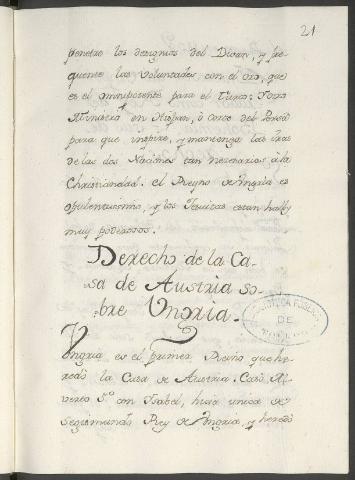 21
penetre los designios del Divan, y fre-
quente las voluntades con el oro, que
es el omnipotente para el Turco: Otro
Ministro en Hispan, ò corte del Persa
para que inspire, y mantenga las iras
de las dos Naciones tan necesarias á la
Christiandad. el Reyno de Ungria es
opulentissimo, y los Jesuitas estan halli
muy poderosos.
Derecho de la Ca-
sa de Austria so-
bre Ungria.
Ungria es el primer Reyno que he-
redò la Casa de Austria. Casò Al-
verto 5.º con Isabel, hija unica de
Segismundo Rey de Ungria, y heredò
BIBLIOTECA PUBLICA
DE
TOLEDO